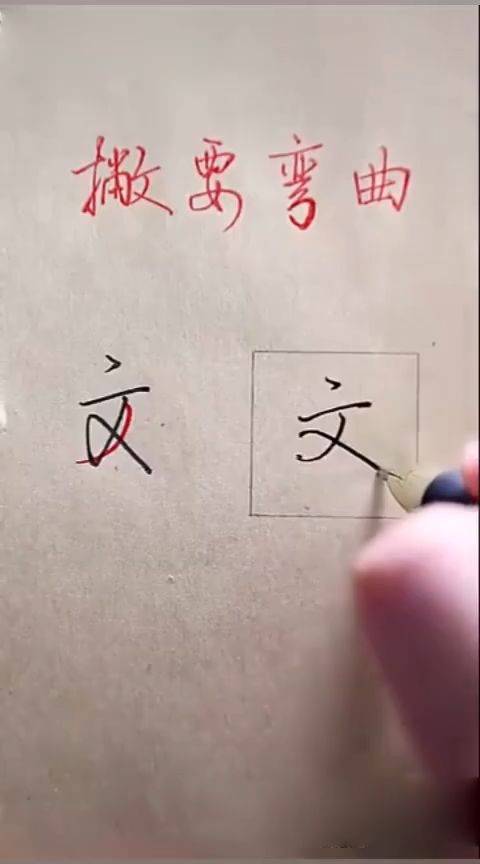 撇要弯曲
文 文